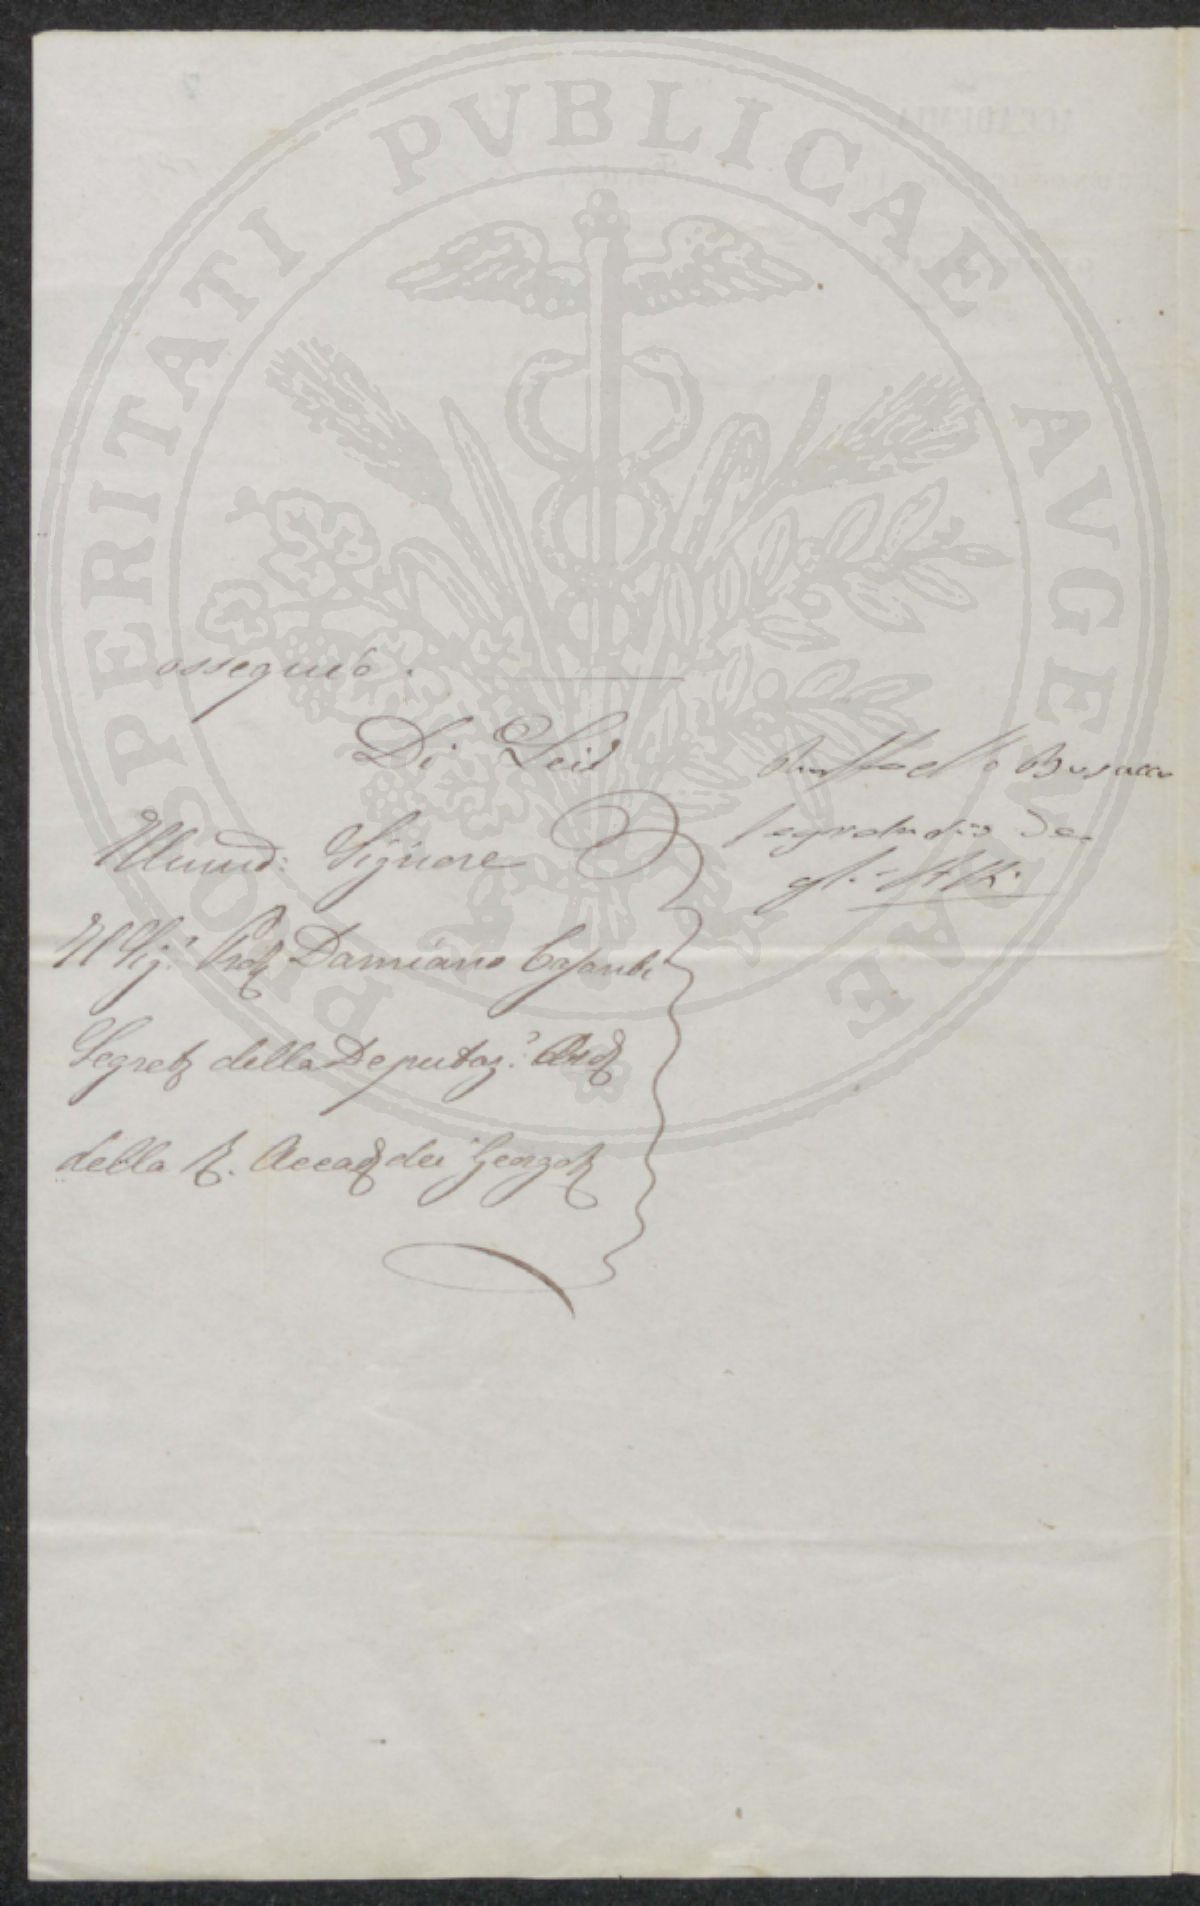 PROSPERITATI PUBLICAE AVGENDAE
ossequio.
Di Lei
Raffaello Busacca
Segretario de
gli Atti
Illmo: Signore
Il Sig.r Prof Damiano Casanti
Segret della Deputaz.e Ard
della R. Accad dei Georgof